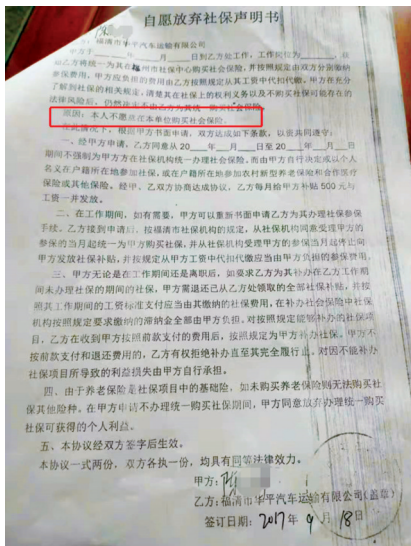 自愿放弃社保声明书
福清市华平汽车运输有限公司
甲方于 年 月 日到乙方处工作,工作岗位为
乙方将统一为其在福州市社保中心购买社会保险,并按照规定由双方分别缴纳
参保费用,甲方应负担的费用由乙方按照规定从其工资中代扣代缴,甲方在充分
了解到社保的相关规定,清楚其在社保上的权利义务以及不购买社保可能存在的
法律风险后,仍然决定不由乙方为其统一购买社会保险
原因:本人不愿意在本单位购买社会保险。
在此情况下,根据甲方书面申请,双方达成如下条款,以资共同遵守:
一、经甲方申请,乙方同意从20 年 月 日至20 年 月 日
期间不强制为甲方方在社保机构统一办理社会保险,而由甲方自行决定或以个人
名义在户籍所在地参加社保,或在户籍所在地参加农村新型养老保险和合作医疗
保险或其他保险。经甲、乙双方协商达成协议,乙方每月给甲方补贴500元与
工资一并发放。
二、在工作期间,如有需要,甲方可以重新书面申请乙方为其办理社保参保
手续。乙方接到申请后,按福清市社保机构的规定,从社保机构同意受理甲方的
参保的当月起统一为甲方购买社保,并从社保机构受理甲方的参保当月起停止向
甲方发放社保补贴,并按规定从甲方工资中代扣代缴应当由甲方负担的参保费用。
三、甲方无论是在工作期间还是离职后,如要求乙方为其补办在乙方工作期
间未办理社保的期间的社保,甲方需退还已从乙方处领取的全部社保补贴,并按
照其工作期间的工资标准支付应当由其缴纳的社保费用,在补办社会保险中社保
机构按照规定要求缴纳的滞纳金全部由甲方负担。对按照规定能够补办的社保项
目,乙方在收到甲方按照前款支付的费用后,按照规定为甲方补办社保,甲方不
按前款支付和退还费用的,乙方有权拒绝补办直至其完全履行止。对因不能补办
社保项目所导致的利益损失由甲方自行承担。
四、由于养老保险是社保项目中的基础险,如未购买养老保险则无法购买社
保其他险种,在甲方申请不办理统一购买社保期间,甲方同意放弃办理统一购买
社保可获得的个人利益。
五、本协议经双方签字后生效。
本协议一式两份,双方各执一份,均具有同等法律效力。
甲方:
乙方:福清市华平汽车运输有限公司(盖章)
签订日期:2017年9月18日